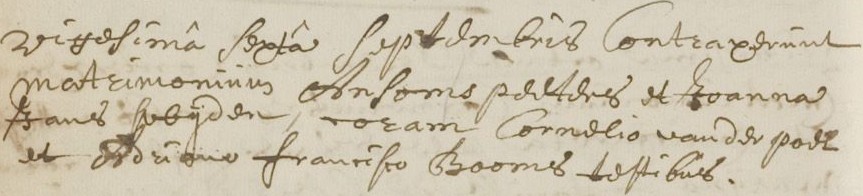 vigesimâ sextâ septembris Contraxerunt
matrimonium Ansems peeters et Joanna
Jans , coram Cornelio vander poel
et Adriano francisco Booms testibus.